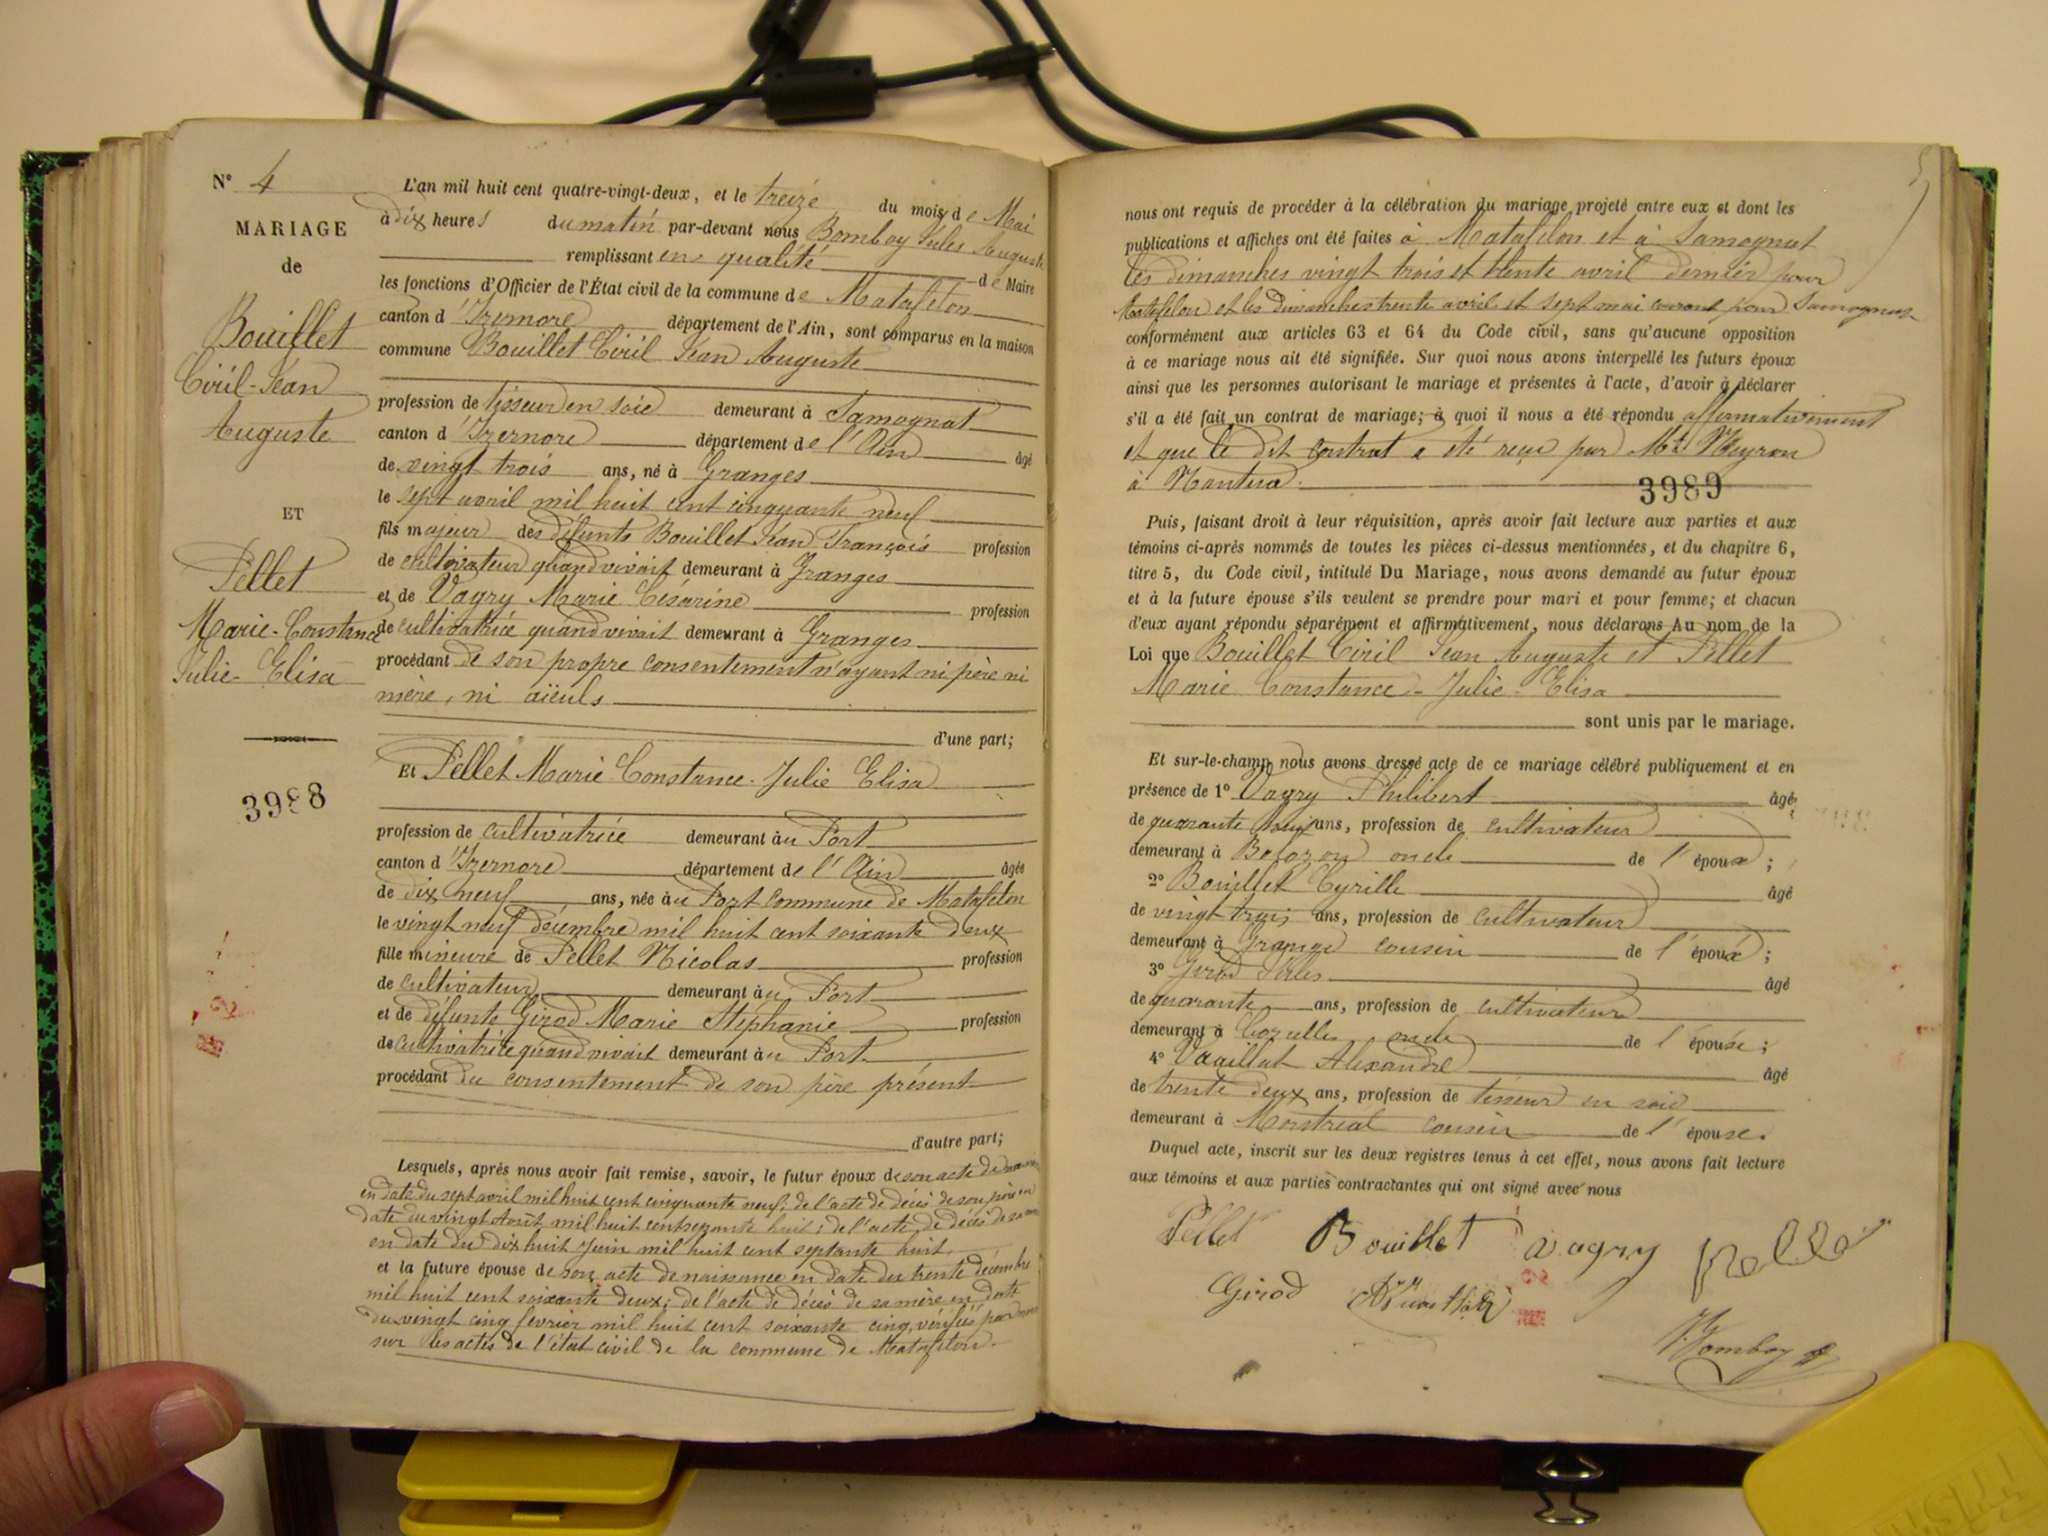 N° 4
MARIAGE
de
Bouillet
Ciril-Jean
Auguste
ET
Pellet
Marie-Constance
Julie-Elisa
3988
L'an mil huit cent quatre-vingt-deux, et le treize du mois de Mai
à dix heures du matin par-devant nous Bomboy Jules Auguste
remplissant en qualité de Maire
les fonctions d'Officier de l'État civil de la commune de Matafelon
canton d'Izernore département de l'Ain, sont comparus en la maison
commune Bouillet Ciril Jean Auguste
profession de tisseur en soie demeurant à Samognat
canton d'Izernore département de l'Ain âgé
de vingt trois ans, né à Granges
le sept avril mil huit cent cinquante neuf
fils majeur des défunts Bouillet Jean François profession
de cultivateur quand vivait demeurant à Granges
et de Vagry Marie Césarine profession
de cultivatrice quand vivait demeurant à Granges
procédant de son propre consentement n'ayant ni père ni
mère, ni aïeuls
d'une part;
Et Pellet Marie Constance-Julie Elisa
profession de cultivatrice demeurant au Port
canton d'Izernore département de l'Ain âgée
de dix neuf ans, née au Port commune de Matafelon
le vingt neuf décembre mil huit cent soixante deux
fille mineure de Pellet Nicolas profession
de cultivateur demeurant au Port
et de défunte Girod Marie Stéphanie profession
de cultivatrice quand vivait demeurant au Port
procédant du consentement de son père présent
d'autre part;
Lesquels, après nous avoir fait remise, savoir, le futur époux de son acte de naissance
en date du sept avril mil huit cent cinquante neuf; de l'acte de décès de son père en
date du vingt Août mil huit cent septante huit; de l'acte de décès de sa mère
en date du dix huit Juin mil huit cent septante huit
et la future épouse de son acte de naissance en date du trente décembre
mil huit cent soixante deux; de l'acte de décès de sa mère en date
du vingt cinq février mil huit cent soixante cinq, vérifiés par nous
sur les actes de l'état civil de la commune de Matafelon.
5
nous ont requis de procéder à la célébration du mariage projeté entre eux et dont les
publications et affiches ont été faites à Matafelon et à Samognat
les dimanches vingt trois et trente avril dernier pour
Matafelon et les dimanches trente avril et sept mai courant pour Samognat
conformément aux articles 63 et 64 du Code civil, sans qu'aucune opposition
à ce mariage nous ait été signifiée. Sur quoi nous avons interpellé les futurs époux
ainsi que les personnes autorisant le mariage et présentes à l'acte, d'avoir à déclarer
s'il a été fait un contrat de mariage; à quoi il nous a été répondu affirmativement
et que le dit contrat a été reçu par Me Neyron
à Nantua.
3989
Puis, faisant droit à leur réquisition, après avoir fait lecture aux parties et aux
témoins ci-après nommés de toutes les pièces ci-dessus mentionnées, et du chapitre 6,
titre 5, du Code civil, intitulé Du Mariage, nous avons demandé au futur époux
et à la future épouse s'ils veulent se prendre pour mari et pour femme; et chacun
d'eux ayant répondu séparément et affirmativement, nous déclarons Au nom de la
Loi que Bouillet Ciril Jean Auguste et Pellet
Marie Constance-Julie-Elisa
sont unis par le mariage.
Et sur-le-champ nous avons dressé acte de ce mariage célébré publiquement et en
présence de 1° Vagry Philibert âgé
de quarante ans, profession de cultivateur
demeurant à oncle de l'époux;
2° Bouillet Cyrille âgé
de vingt trois ans, profession de cultivateur
demeurant à Grange cousin de l'époux;
3° Girod Jules âgé
de quarante ans, profession de cultivateur
demeurant à oncle de l'épouse;
4° Alexandre âgé
de trente deux ans, profession de tisseur en soie
demeurant à Montréal cousin de l'épouse.
Duquel acte, inscrit sur les deux registres tenus à cet effet, nous avons fait lecture
aux témoins et aux parties contractantes qui ont signé avec nous
Pellet Bouillet Vagry Pellet
Girod
J. Bomboy